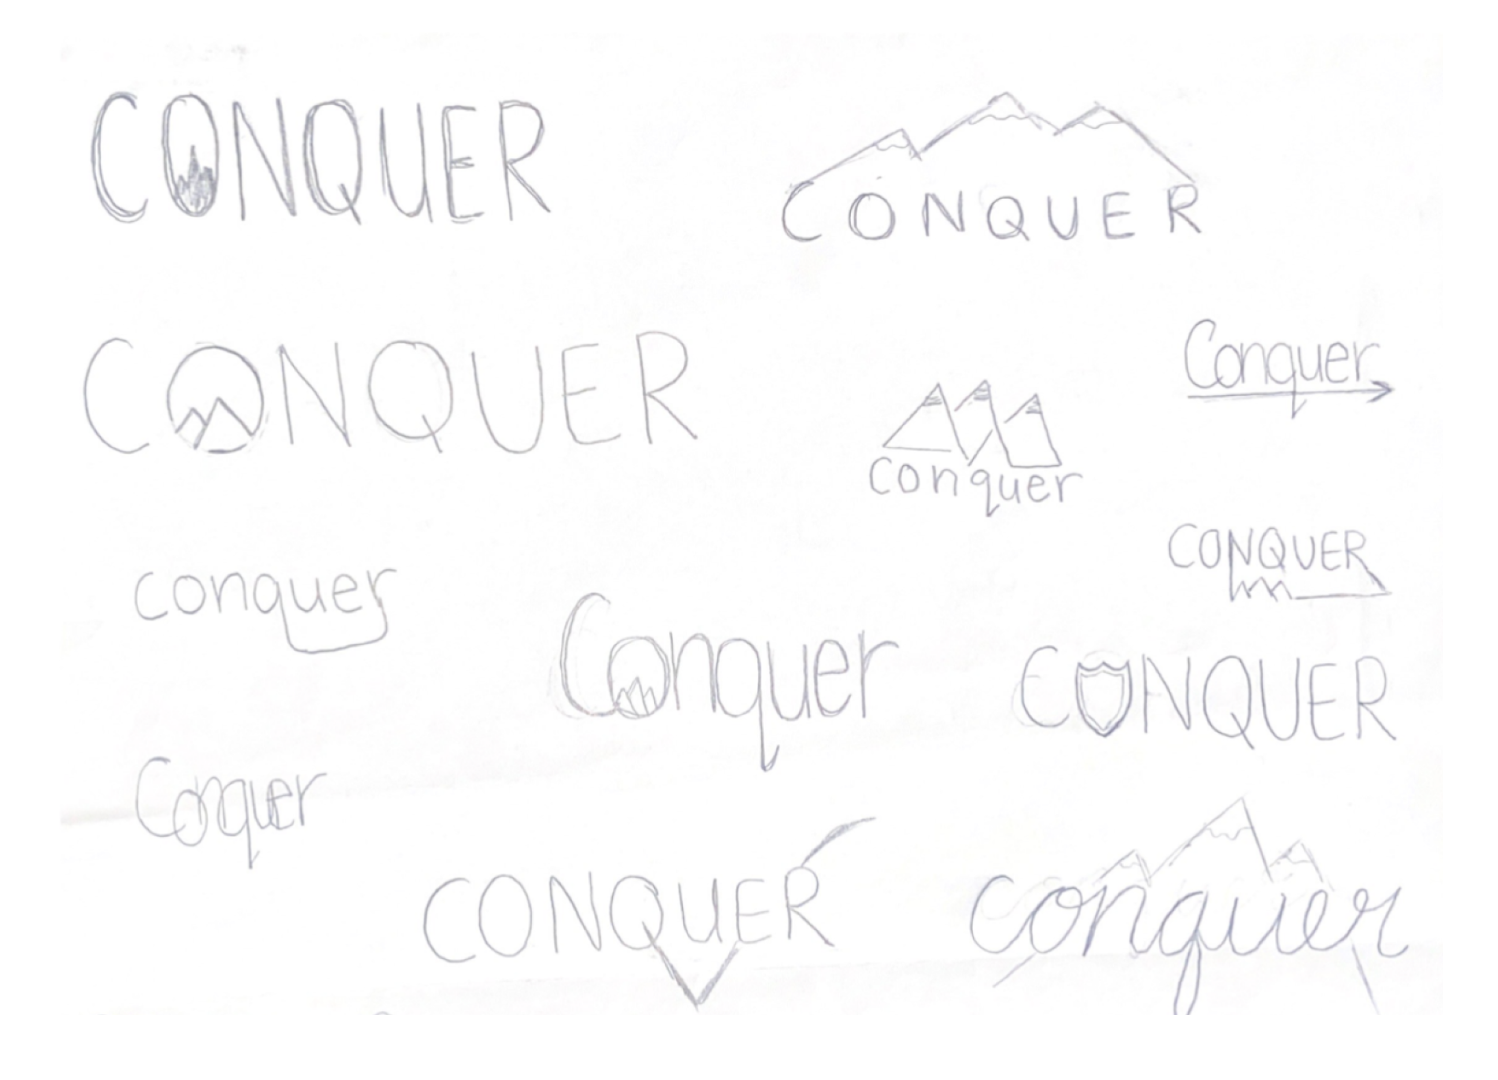 CONQUER
CONQUER
CONQUER
Conquer
conquer
CONQUER
conquer
Conquer
CONQUER
Conquer
CONQUER
conquer